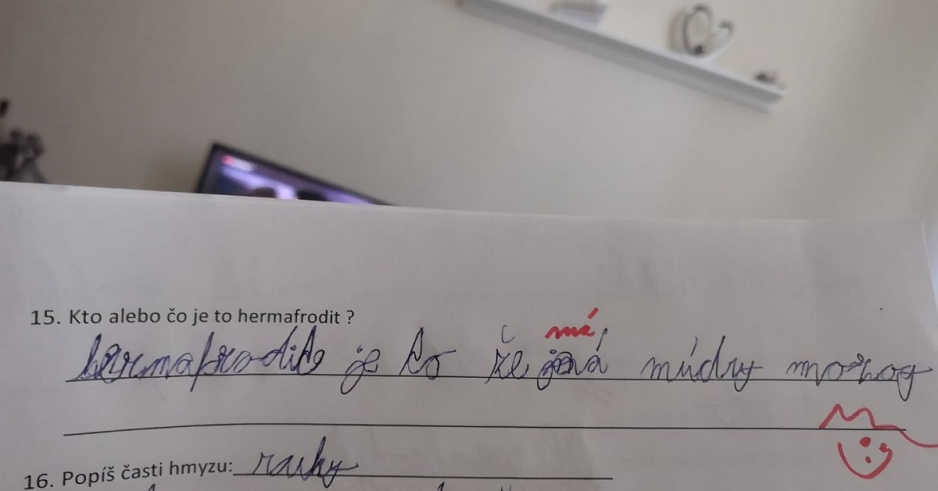 15. Kto alebo čo je to hermafrodit ?
má
hermafrodit je to že má múdry mozog
16. Popíš časti hmyzu: ruky